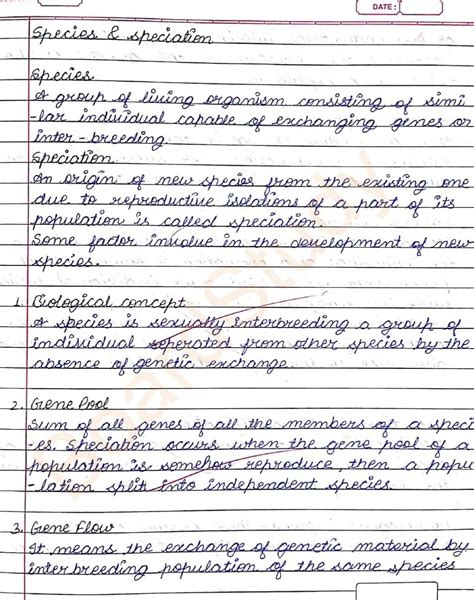 DATE:
Species & speciation
Species
A group of living organism consisting of simi
-lar individual capable of exchanging genes or
inter-breeding.
Speciation
An origin of new species from the existing one
due to reproductive isolations of a part of its
population is called speciation.
Some factor involue in the development of new
species.
1. Biological concept
A species is sexually interbreeding a group of
individual seperated from other species by the
absence of genetic exchange.
2. Gene Pool
Sum of all genes of all the members of a speci
-es. Speciation occurs when the gene pool of a
population is somehow reproduce, then a popu
-lation split into independent species.
3. Gene Flow
It means the exchange of genetic material by
inter breeding population of the same species